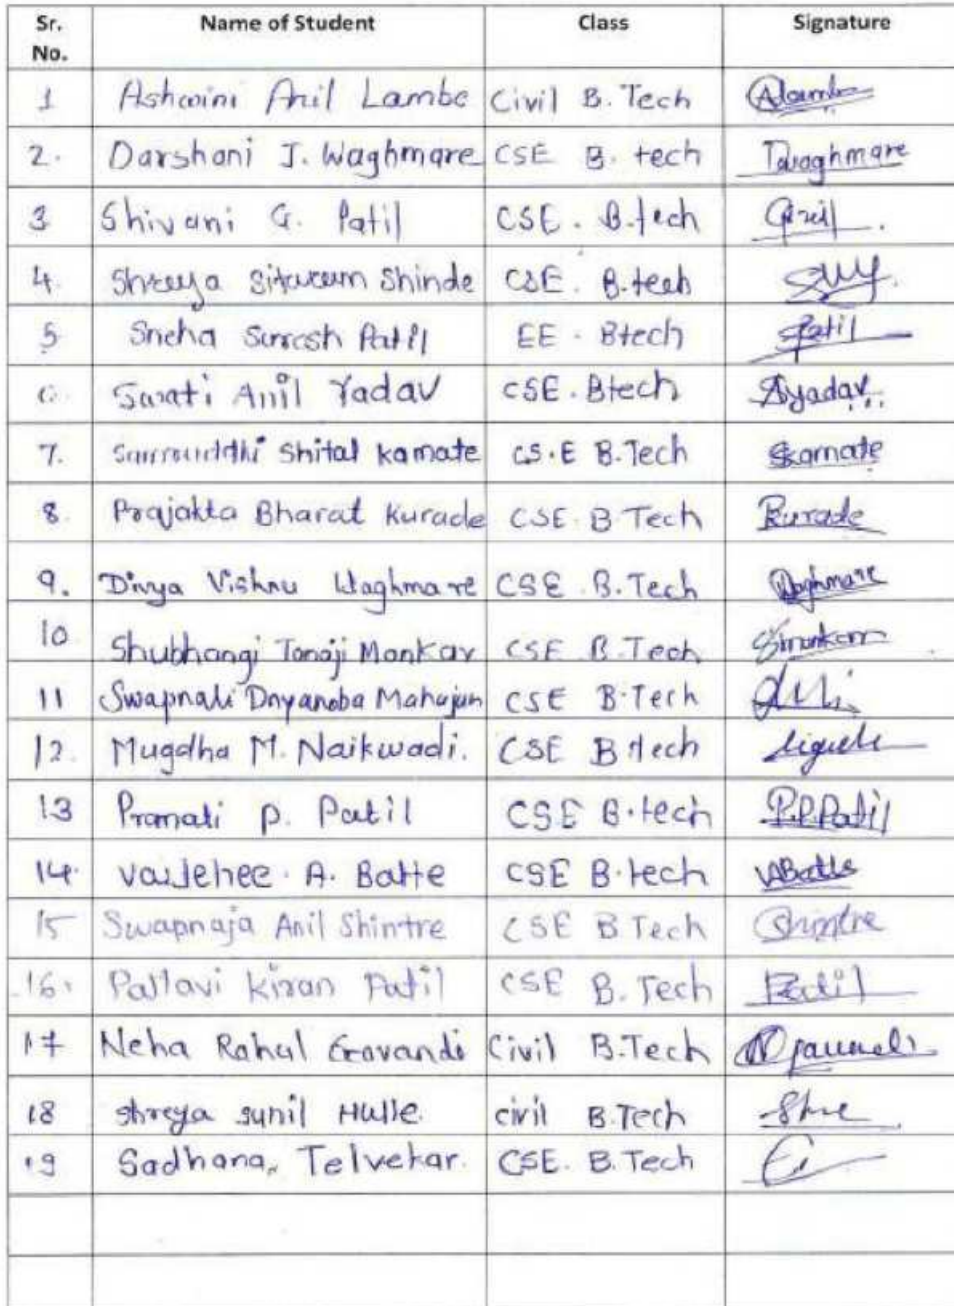 Sr. No. Name of Student Class Signature
1 Ashwini Anil Lambe Civil B. Tech ALambe
2. Darshani J. Waghmare CSE B. tech Waghmare
3 Shivani G. Patil CSE. B.tech
4. Shreya Sitaram Shinde CSE. B.tech
5 Sneha Suresh Patil EE - Btech Patil
6. Swati Anil Yadav CSE. Btech SYadav
7. Shital Kamate CS.E B.Tech Skamate
8. Prajakta Bharat Kurade CSE. B.Tech Kurade
9. Divya Vishnu Waghmare CSE. B.Tech Waghmare
10 Shubhangi Tanaji Mankar CSE B.Tech Smankar
11 Swapnali Dnyanoba Mahajan CSE B.Tech
12. Mugdha M. Naikwadi. CSE B.tech
13 Pranati P. Patil CSE B.tech P.P.Patil
14. Vaidehee. A. Batte CSE B.tech VABatte
15 Swapnaja Anil Shintre CSE B Tech Shintre
16. Pallavi Kiran Patil CSE B. Tech Patil
17 Neha Rahul Gavandi Civil B.Tech
18 Shreya Sunil Hulle. civil B.Tech Shre
19 Sadhana, Telvekar. CSE. B.Tech